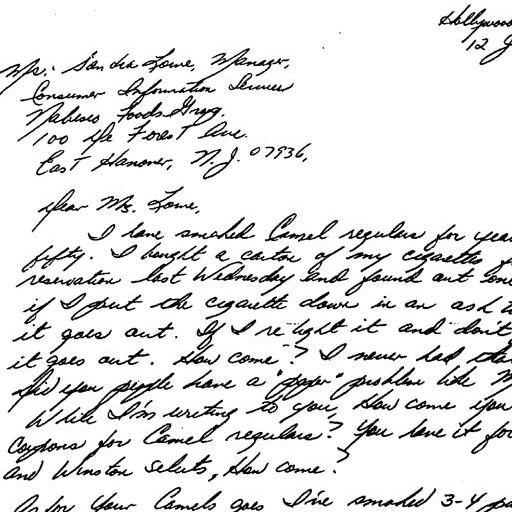 Hollywood
12 J
Ms. Sandra Lowe, Manager,
Consumer Information Services
Nabisco Foods Group.
100 De Forest Ave.
East Hanover, N.J. 07936,
Dear Ms. Lowe,
I have smoked Camel regulars for year
fifty. I bought a carton of my cigarettes f
reservation last Wednesday and found out one
if I put the cigarette down in an ash t
it goes out. If I re light it and don't
it goes out. How come? I never had tha
Did you people have a "paper" problem like M
While I'm writing to you, How come you
coupons for Camel regulars? You have it for
and Winston Selects, How come?
As for your Camels goes I've smoked 3-4 pa